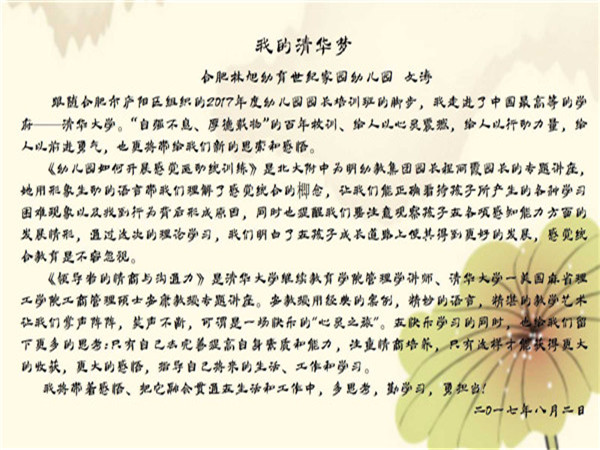 我的清华梦
合肥林旭幼育世纪家园幼儿园 文涛
跟随合肥市庐阳区组织的2017年度幼儿园园长培训班的脚步，我走进了中国最高等的学
府——清华大学。“自强不息、厚德载物”的百年校训、给人以心灵震撼，给人以行动力量，给
人以前进勇气，也更将带给我们新的思索和感悟。
《幼儿园如何开展感觉运动统训练》是北大附中为明幼教集团园长程丽霞园长的专题讲座，
她用形象生动的语言带我们理解了感觉统合的概念，让我们能正确看待孩子所产生的各种学习
困难现象以及找到行为背后形成原因，同时也提醒我们要注意观察孩子在各项感知能力方面的
发展情形，通过这次的理论学习，我们明白了在孩子成长道路上使其得到更好的发展，感觉统
合教育是不容忽视。
《领导者的情商与沟通力》是清华大学继续教育学院管理学讲师、清华大学—美国麻省理
工学院工商管理硕士安康教授专题讲座。安教授用经典的案例，精妙的语言，精湛的教学艺术
让我们掌声阵阵，笑声不断，可谓是一场快乐的“心灵之旅”。在快乐学习的同时，也给我们留
下更多的思考:只有自己去完善提高自身素质和能力，注重情商培养，只有这样才能获得更大
的收获，更大的感悟，指导自己将来的生活、工作和学习。
我将带着感悟、把它融会贯通在生活和工作中，多思考，勤学习，勇担当!
二〇一七年八月二日